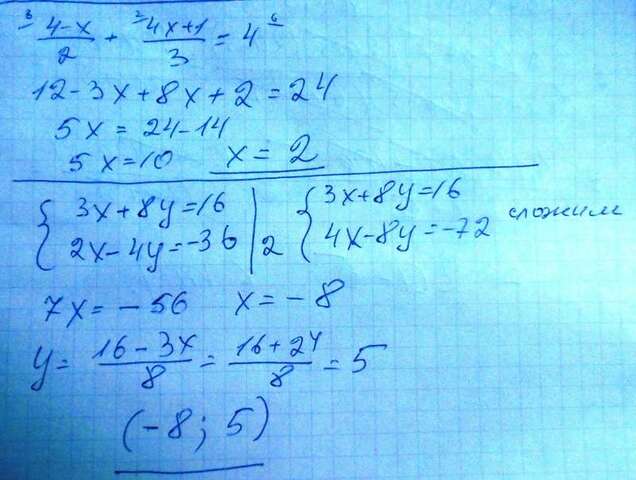 ³ (4-x)/2 + ² (4x+1)/3 = 4 ⁶
12-3x+8x+2=24
5x=24-14
5x=10 x=2
{3x+8y=16 {3x+8y=16
{2x-4y=-36 | 2 {4x-8y=-72 сложим
7x=-56 x=-8
y= (16-3x)/8 = (16+24)/8 = 5
(-8; 5)